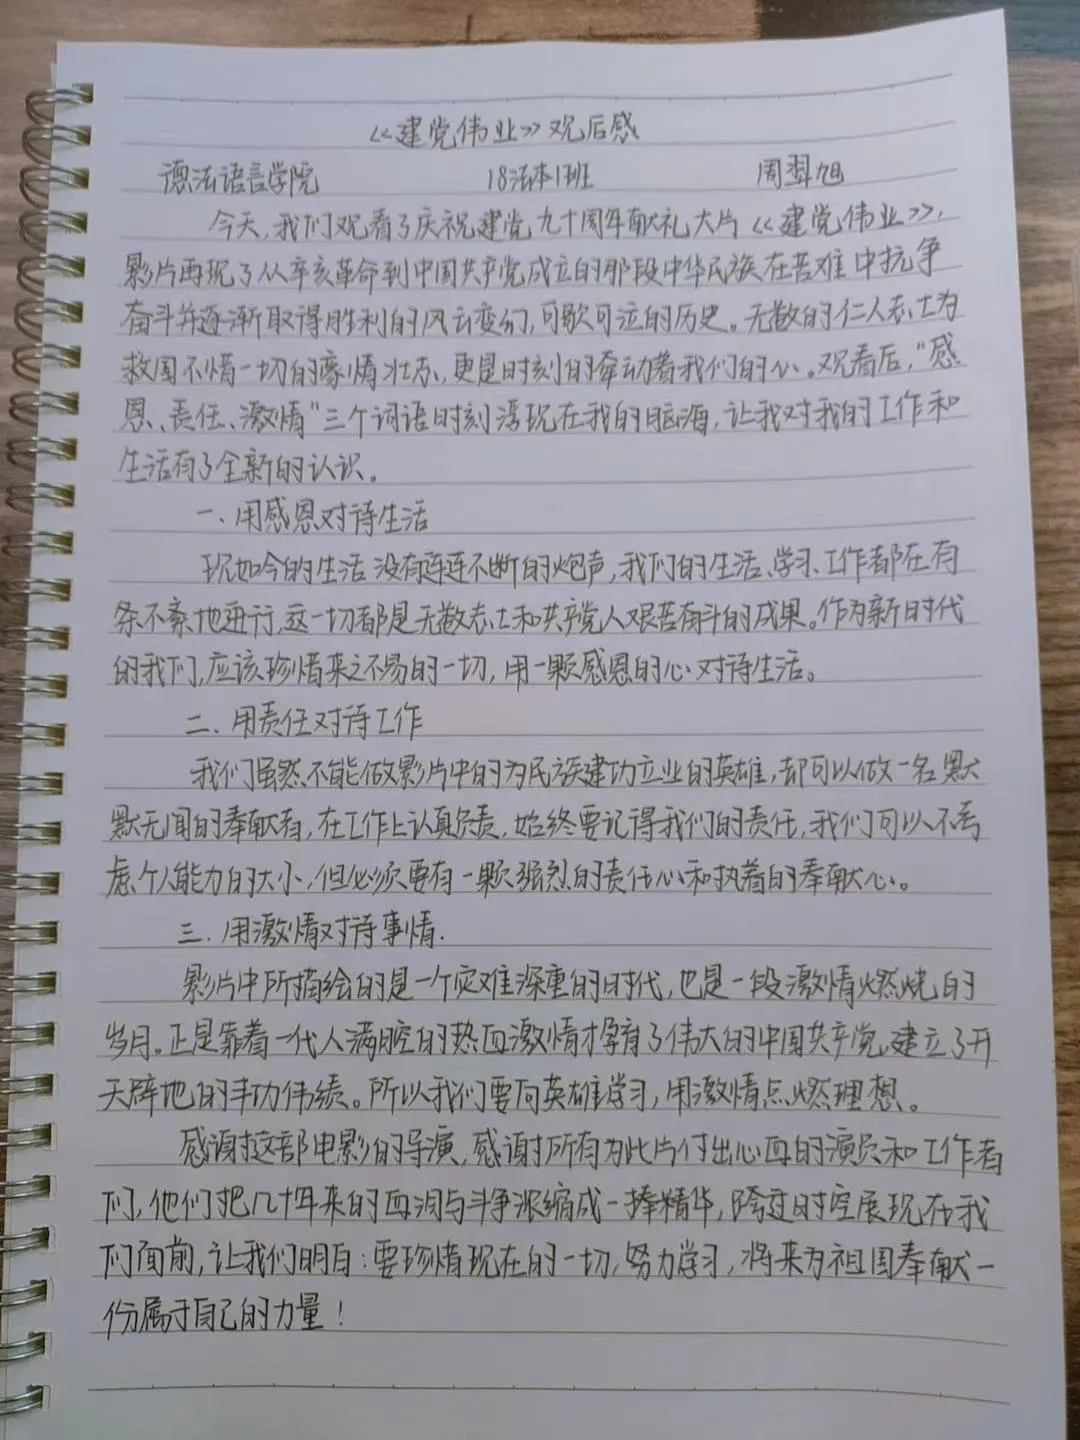 《建党伟业》观后感
德法语言学院 18法本1班 周翌旭
今天,我们观看了庆祝建党九十周年献礼大片《建党伟业》,
影片再现了从辛亥革命到中国共产党成立的那段中华民族在苦难中抗争
奋斗并逐渐取得胜利的风云变幻,可歌可泣的历史。无数的仁人志士为
救国不惜一切的豪情壮志,更是时刻的牵动着我们的心。观看后,“感
恩、责任、激情”三个词语时刻浮现在我的脑海,让我对我的工作和
生活有了全新的认识。
一、用感恩对待生活
现如今的生活没有连连不断的炮声,我们的生活、学习、工作都在有
条不紊地进行,这一切都是无数志士和共产党人艰苦奋斗的成果。作为新时代
的我们,应该珍惜来之不易的一切,用一颗感恩的心对待生活。
二、用责任对待工作
我们虽然不能做影片中的为民族建功立业的英雄,却可以做一名默
默无闻的奉献者,在工作上认真负责,始终要记得我们的责任,我们可以不考
虑个人能力的大小,但必须要有一颗强烈的责任心和执着的奉献心。
三.用激情对待事情.
影片中所描绘的是一个灾难深重的时代,也是一段激情燃烧的
岁月。正是靠着一代人满腔的热血激情才孕育了伟大的中国共产党,建立了开
天辟地的丰功伟绩。所以我们要向英雄学习,用激情点燃理想。
感谢这部电影的导演,感谢所有为此片付出心血的演员和工作者
们,他们把几十年来的血泪与斗争浓缩成一捧精华,跨过时空展现在我
们面前,让我们明白:要珍惜现在的一切,努力学习,将来为祖国奉献一
份属于自己的力量!